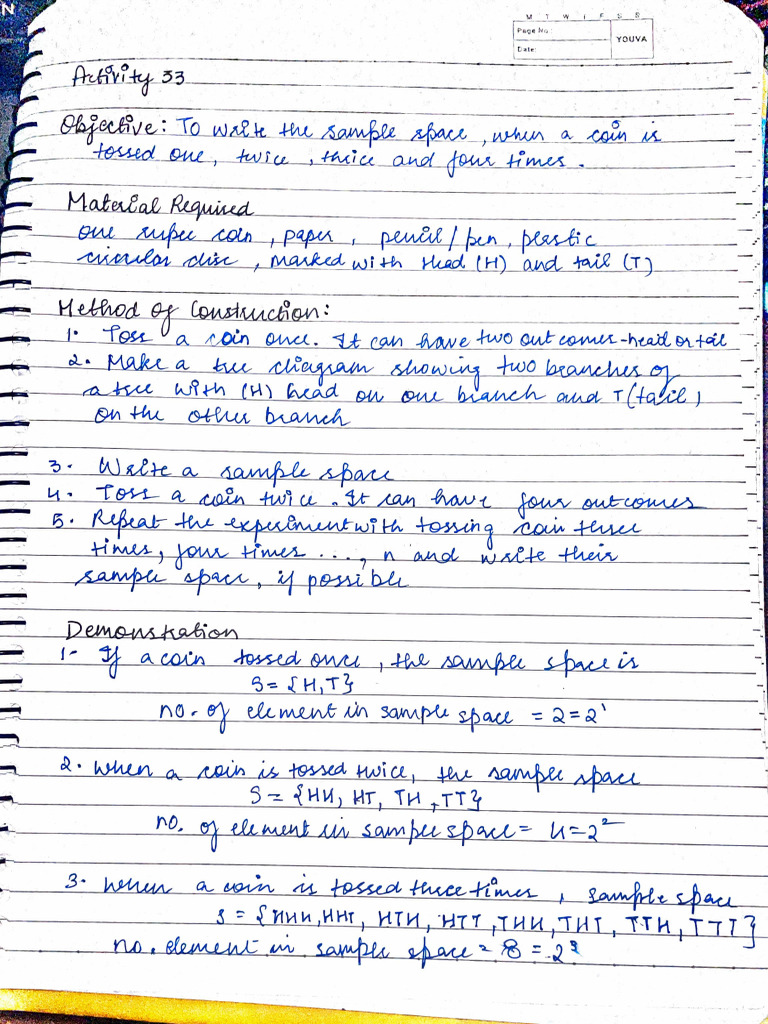 N
M T W T F S S
Page No.:
YOUVA
Date:
Activity 33
Objective: To write the sample space, when a coin is
tossed one, twice, thrice and four times.
Material Required
one rupee coin, paper, pencil/pen, plastic
circular disc, marked with Head (H) and tail (T)
Method of Construction:
1. Toss a coin once. It can have two outcomes-head or tail
2. Make a tree diagram showing two branches of
a tree with (H) head on one branch and T (tail)
on the other branch
3. Write a sample space
4. Toss a coin twice. It can have four outcomes
5. Repeat the experiment with tossing coin three
times, four times ...., n and write their
sample space, if possible
Demonstration
1- If a coin tossed once, the sample space is
S = {H,T}
no. of element in sample space = 2 = 2¹
2. when a coin is tossed twice, the sample space
S = {HH, HT, TH, TT}
no. of element in sample space = 4 = 2²
3. when a coin is tossed three times, sample space
S = {HHH, HHT, HTH, HTT, THH, THT, TTH, TTT}
no. element in sample space = 8 = 2³